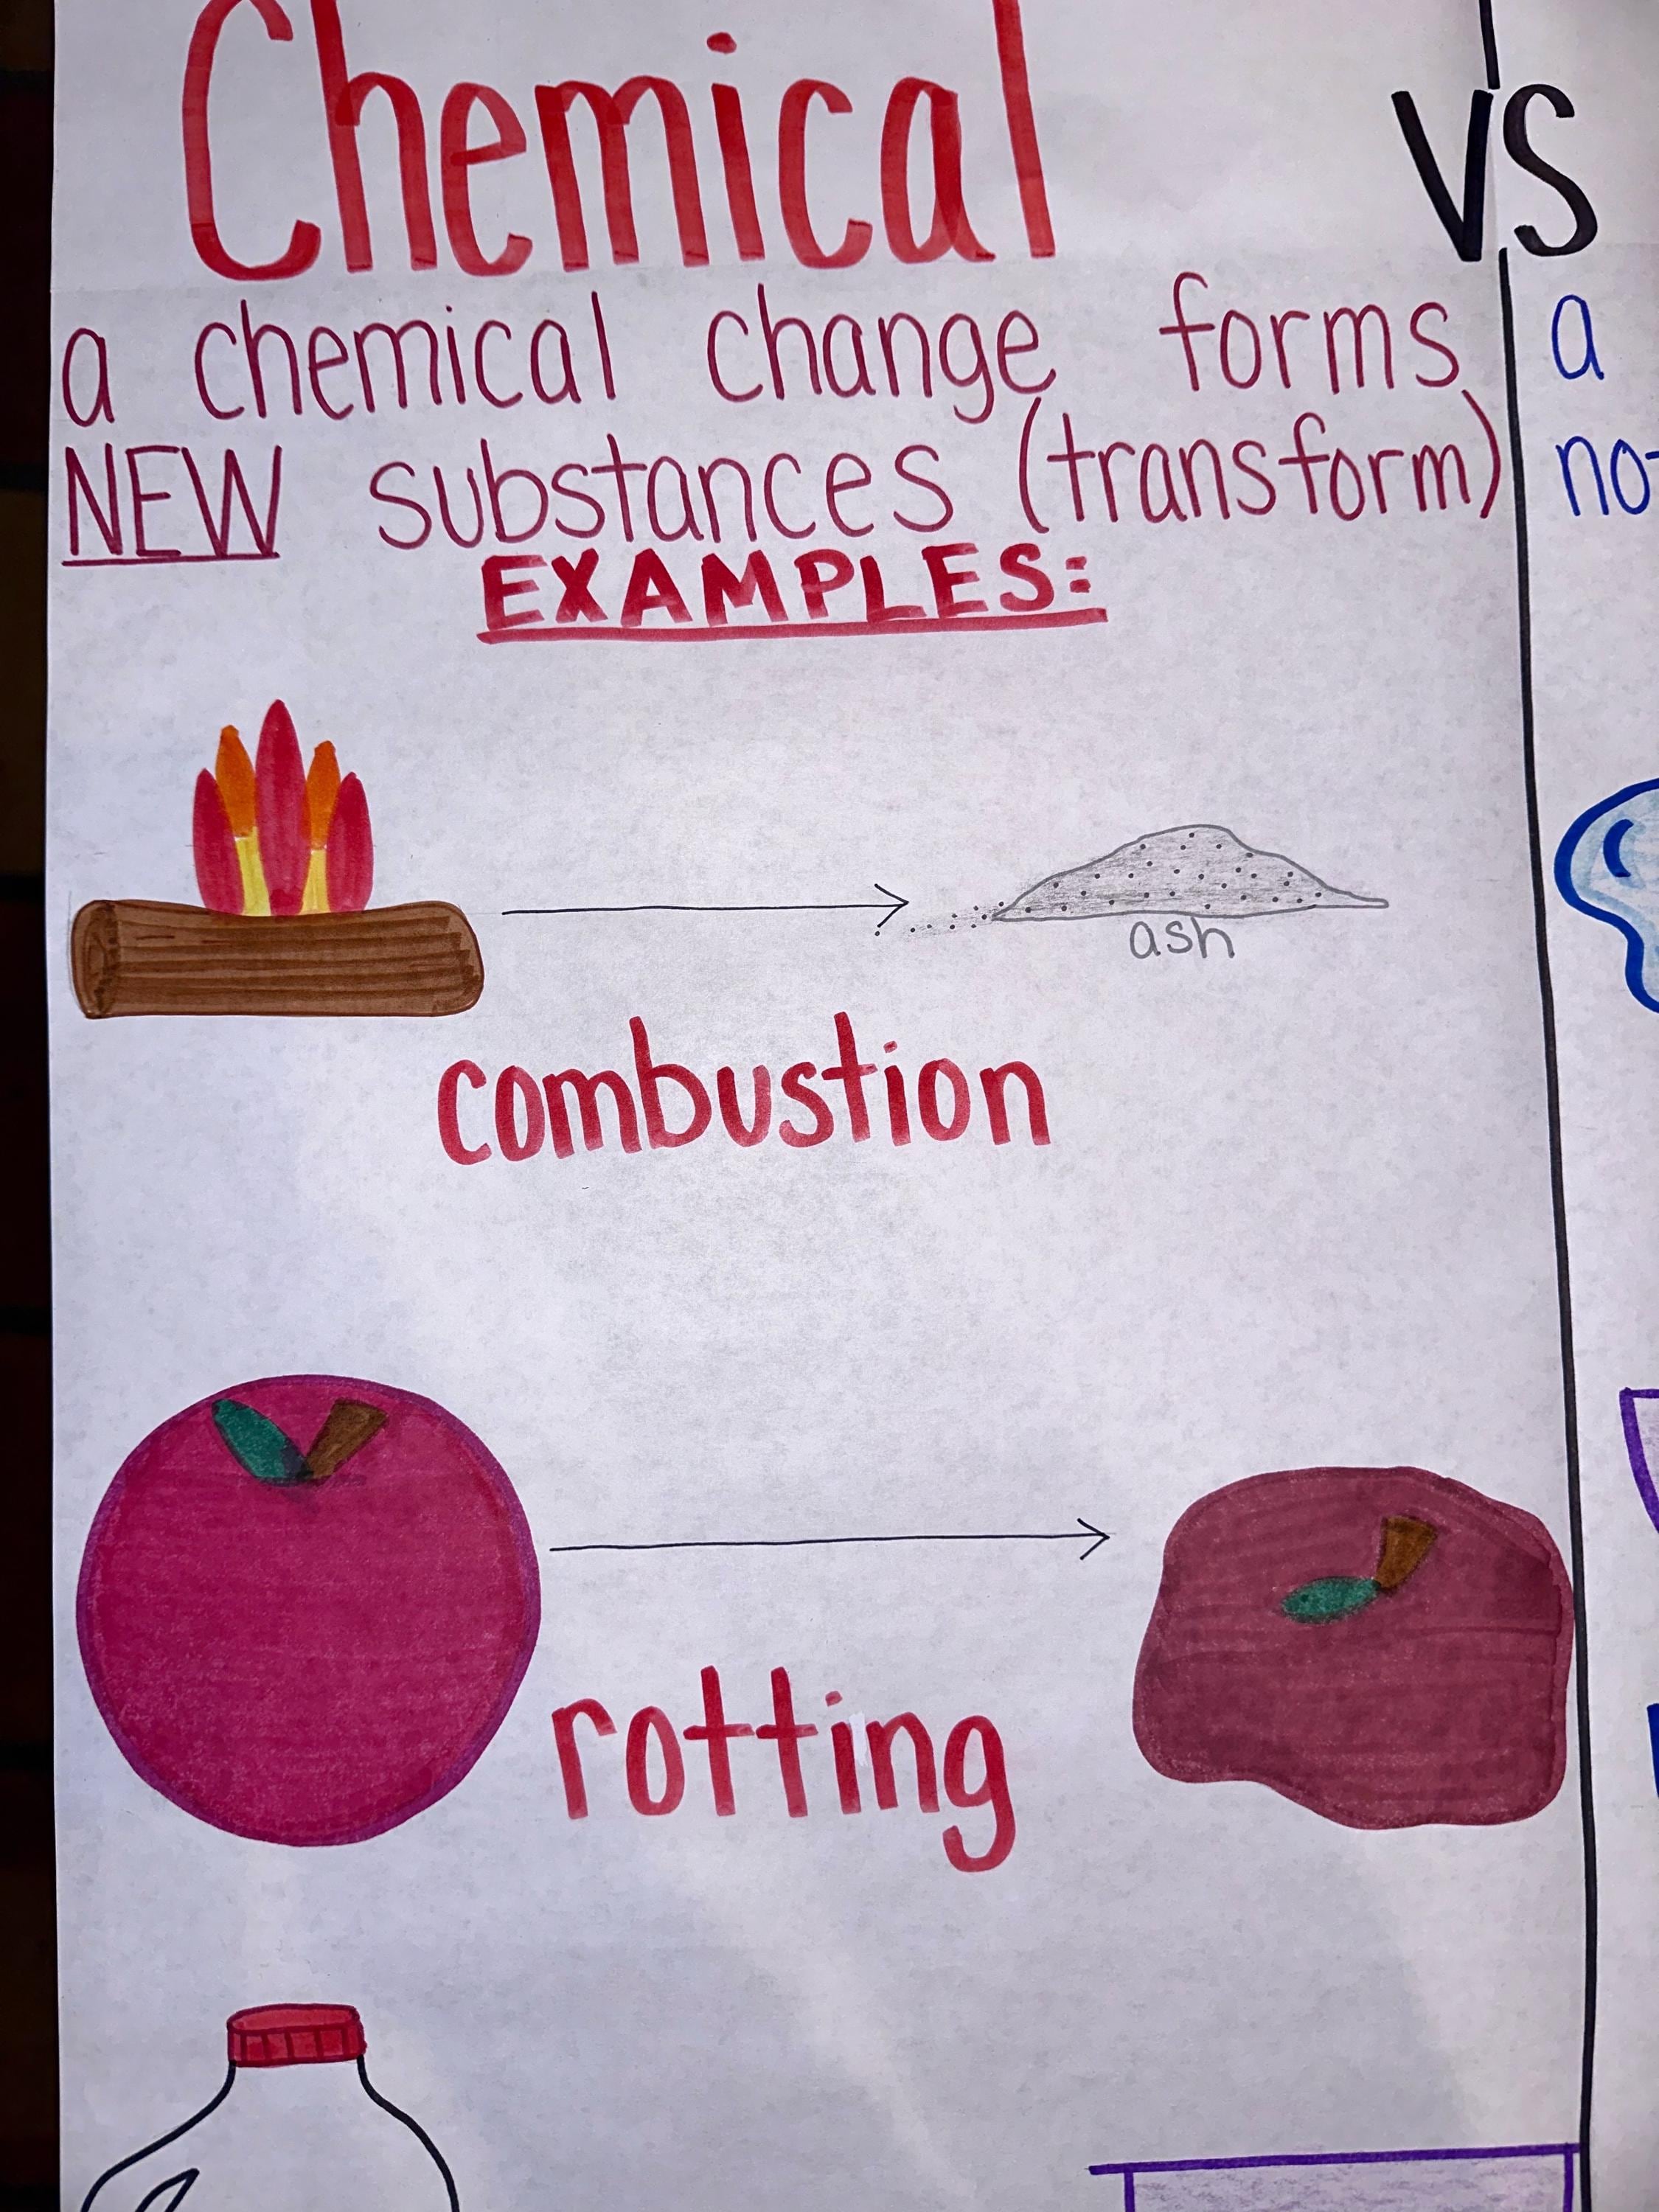 Chemical
vs
a chemical change forms
NEW substances (transform)
EXAMPLES:
ash
combustion
rotting
a